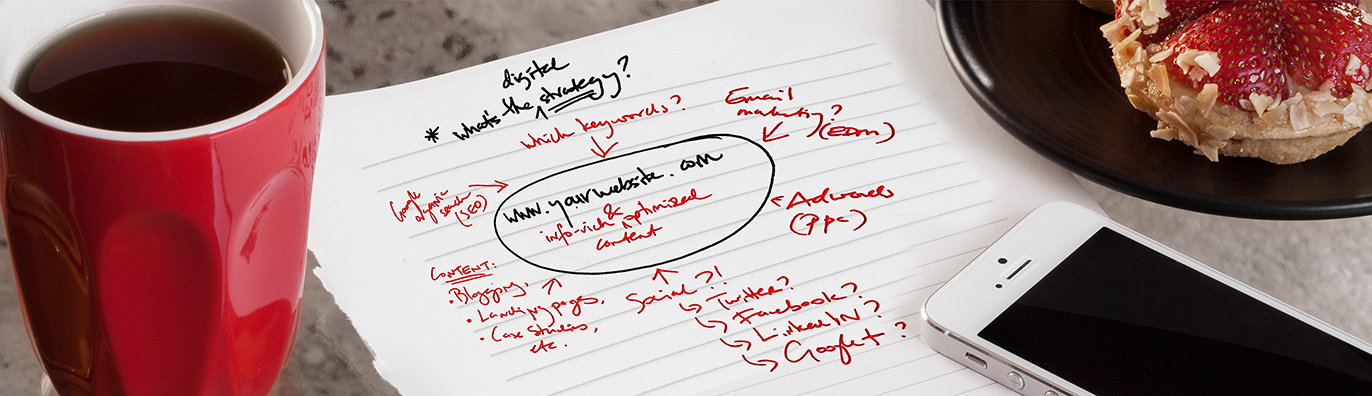 digital
* what's the strategy?
which keywords?
Email
marketing?
(EDM)
Google
organic
search
(SEO)
www.yourwebsite.com
info-rich & optimized
content
Adwords
(PPC)
CONTENT:
• Blogging,
• Landing pages,
• Case Studies,
etc.
Social?!
Twitter?
Facebook?
LinkedIN?
Google+?